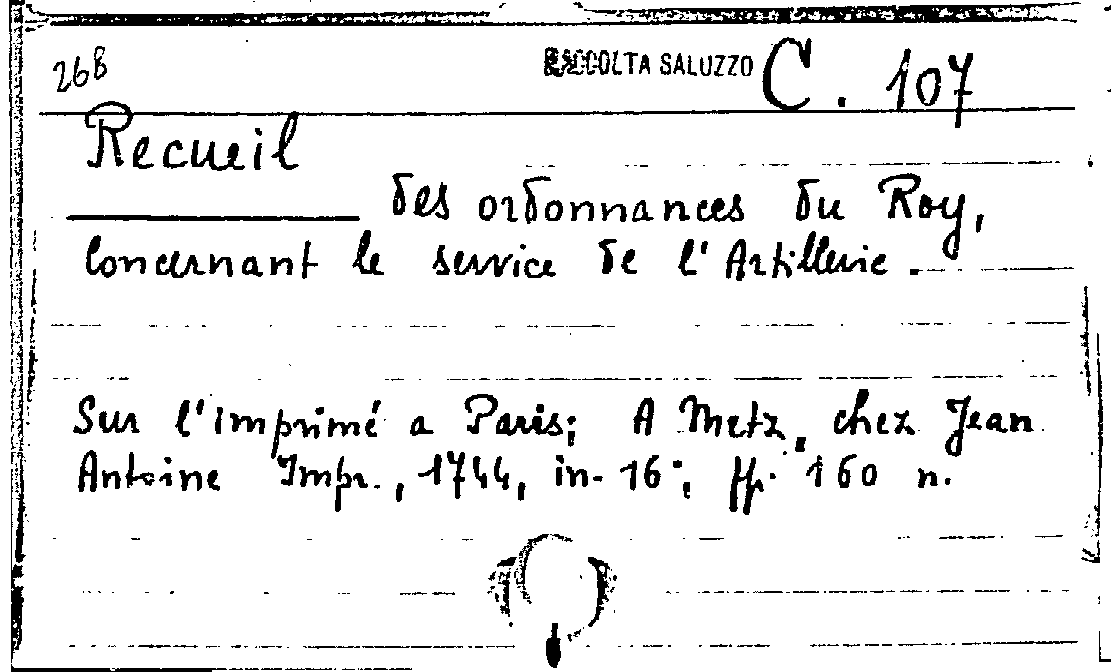 268 RACCOLTA SALUZZO C. 107
Recueil
des ordonnances du Roy,
concernant le service de l'Artillerie.
Sur l'imprimé a Paris; A Metz, chez Jean
Antoine Impr., 1744, in-16°; ff. 160 n.